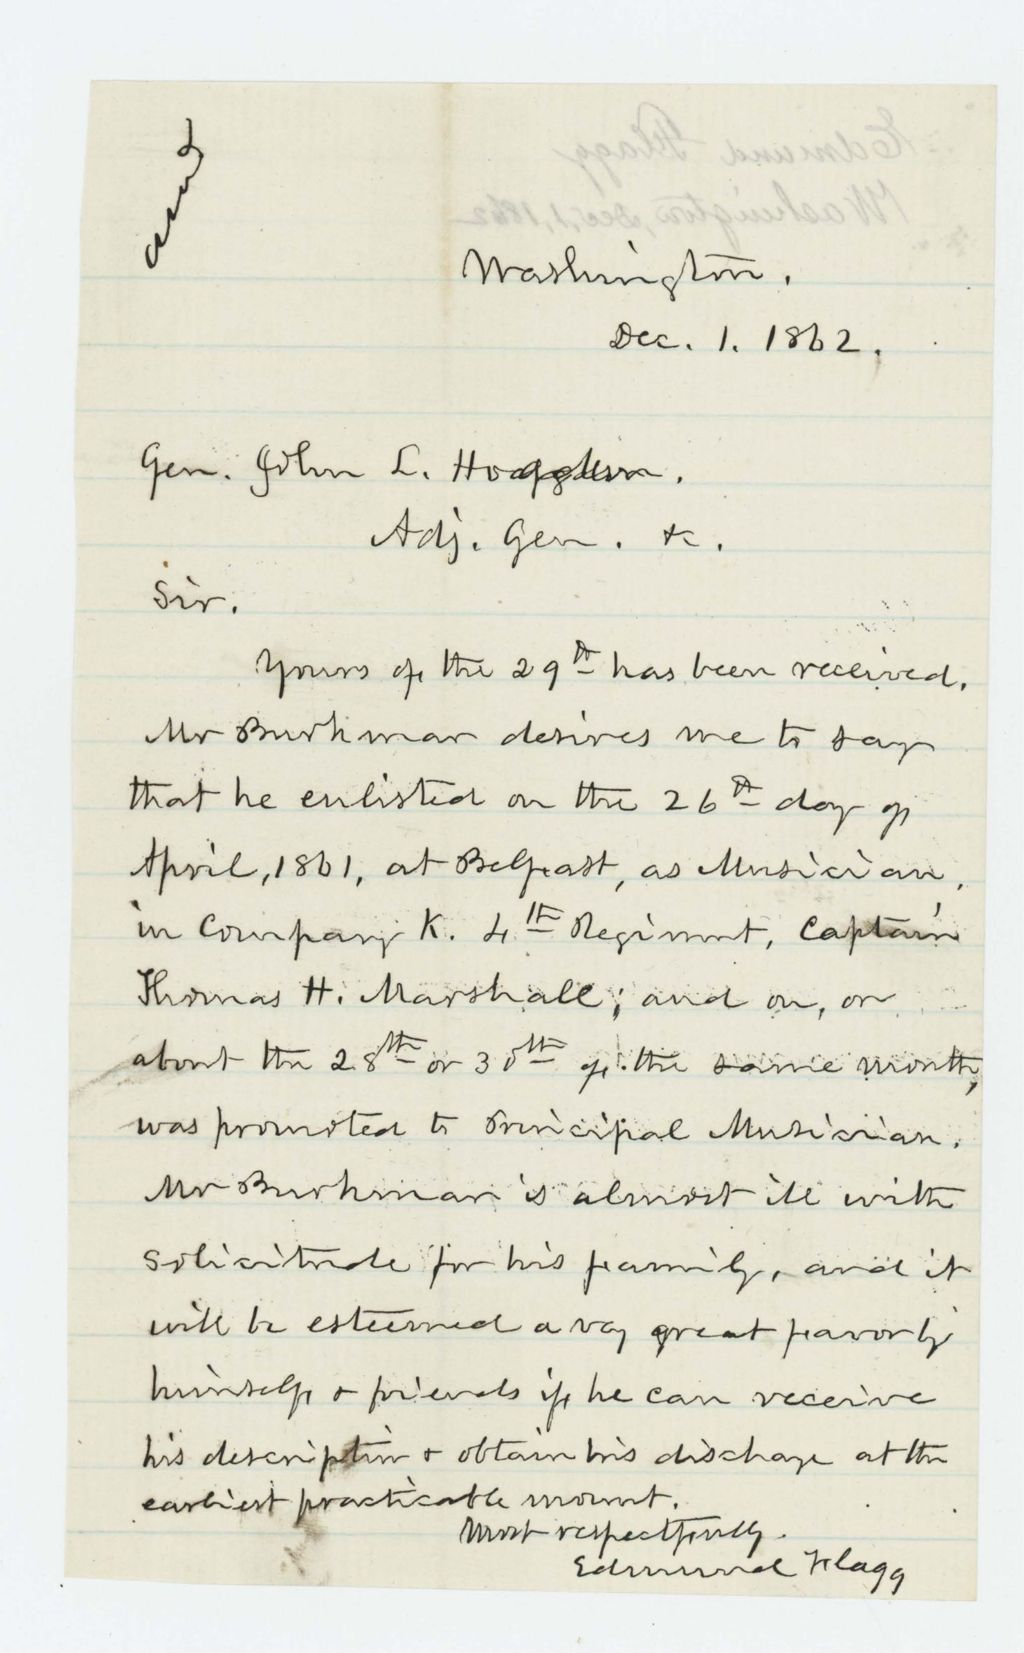 ansd
Washington.
Dec. 1. 1862.
Gen. John L. Hodgdon.
Adj. Gen. &c.
Sir.
Yours of the 29th has been received.
Mr Burkmar desires me to say
that he enlisted on the 26th day of
April, 1861, at Belfast, as Musician,
in Company K. 4th Regiment, Captain
Thomas H. Marshall; and on, or
about the 28th or 30th of the same month,
was promoted to Principal Musician.
Mr Burkmar is almost ill with
solicitude for his family, and it
will be esteemed a very great favor by
himself & friends if he can receive
his description & obtain his discharge at the
earliest practicable moment.
Most respectfully.
Edmund Flagg